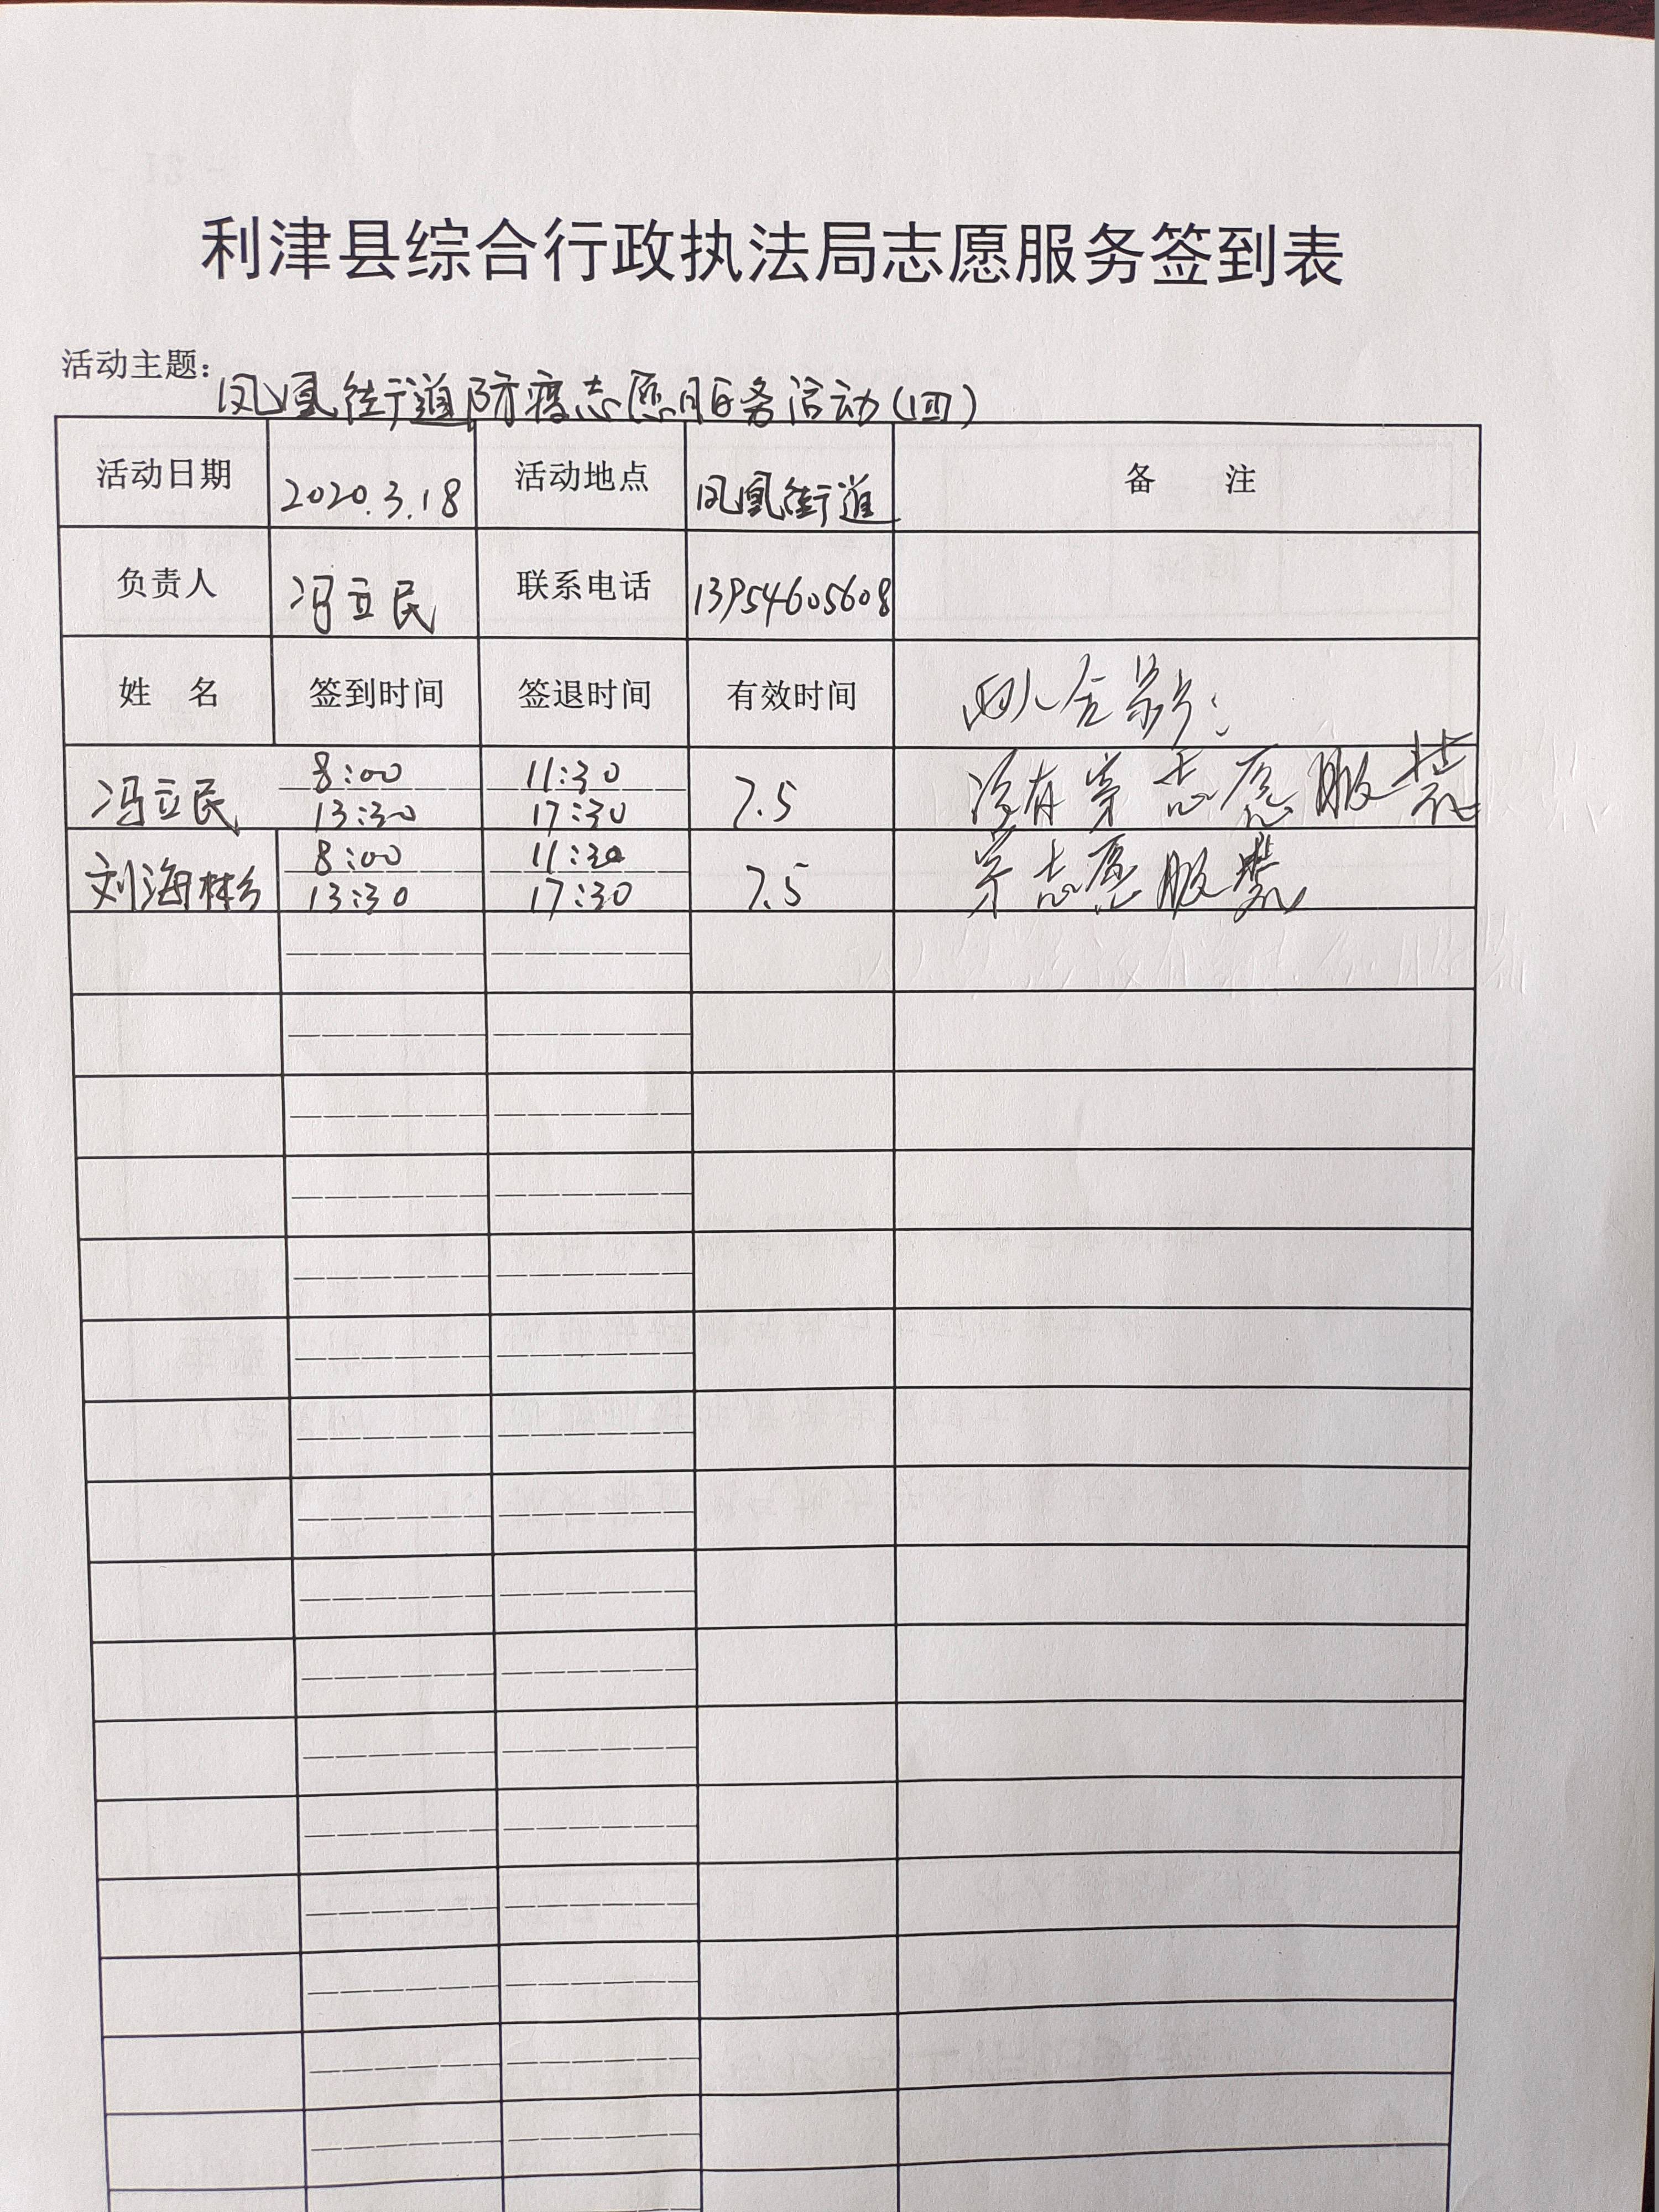 利津县综合行政执法局志愿服务签到表
活动主题：凤凰街道防疫志愿服务活动(四)
活动日期 2020.3.18 活动地点 凤凰街道 备 注
负责人 冯立民 联系电话 13954605608
姓 名 签到时间 签退时间 有效时间 两人合影：
冯立民 8:00 11:30 7.5 没有穿志愿服装
13:30 17:30
刘海 8:00 11:30 7.5 穿志愿服装
13:30 17:30